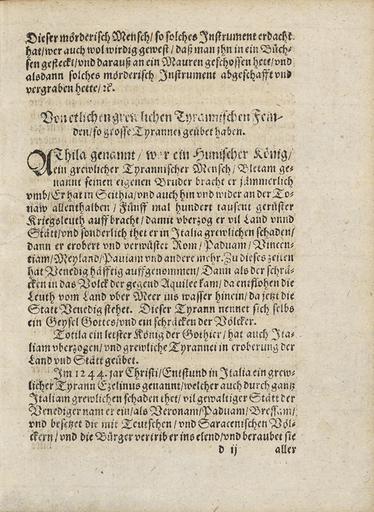 Dieser mörderisch Mensch/ so solches Instrument erdacht
hat/ wer auch wol wirdig gewest/ daß man jhn in ein Büch-
sen gesteckt/ vnd darauß an ein Mauren geschossen hett/ vnd
alsdann solches mörderisch Instrument abgeschafft vnd
vergraben hette/ ꝛc.
Von etlichen grewlichen Tyrannischen Fein-
den/ so grosse Tyrannei geübet haben.
AThila genannt/ wer ein Hunischer König/
ein grewlicher Tyrannischer Mensch/ Bletam ge-
nannt seinen eigenen Bruder bracht er jämmerlich
vmb/ Er hat in Scithia/ vnd auch hin vnd wider an der To-
naw allenthalben/ Fünff mal hundert tausent gerüster
Kriegsleuth auff bracht/ damit vberzog er vil Land vnnd
Stätt/ vnd sonderlich thet er in Italia grewlichen schaden/
dann er erobert vnd verwüstet Rom/ Paduam/ Vincen-
tiam/ Meyland/ Pauiam vnd andere mehr. Zu dieses zeiten
hat Venedig häfftig auffgenommen/ Dann als der schrä-
cken in das Volck der gegend Aquilee kam/ da entflohen die
Leuth vom Land vber Meer ins wasser hinein/ da jetzt die
Statt Venedig stehet. Dieser Tyrann nennet sich selbs
ein Geysel Gottes/ vnd ein schräcken der Völcker.
Totila ein letster König der Gothier/ hat auch Ita-
liam vberzogen/ vnd grewliche Tyrannei in eroberung der
Land vnd Stätt geübet.
Im 1244. jar Christi/ Entstund in Italia ein grew-
licher Tyrann Ezelinus genannt/ welcher auch durch gantz
Italiam grewlichen schaden thet/ vil gewaltiger Stätt der
Venediger nam er ein/ als Veronam/ Paduam/ Bressam/
vnd besetzet die mit Teutschen/ vnd Saracenischen Völ-
ckern/ vnd die Bürger vertrib er ins elend/ vnd beraubet sie
d ij aller